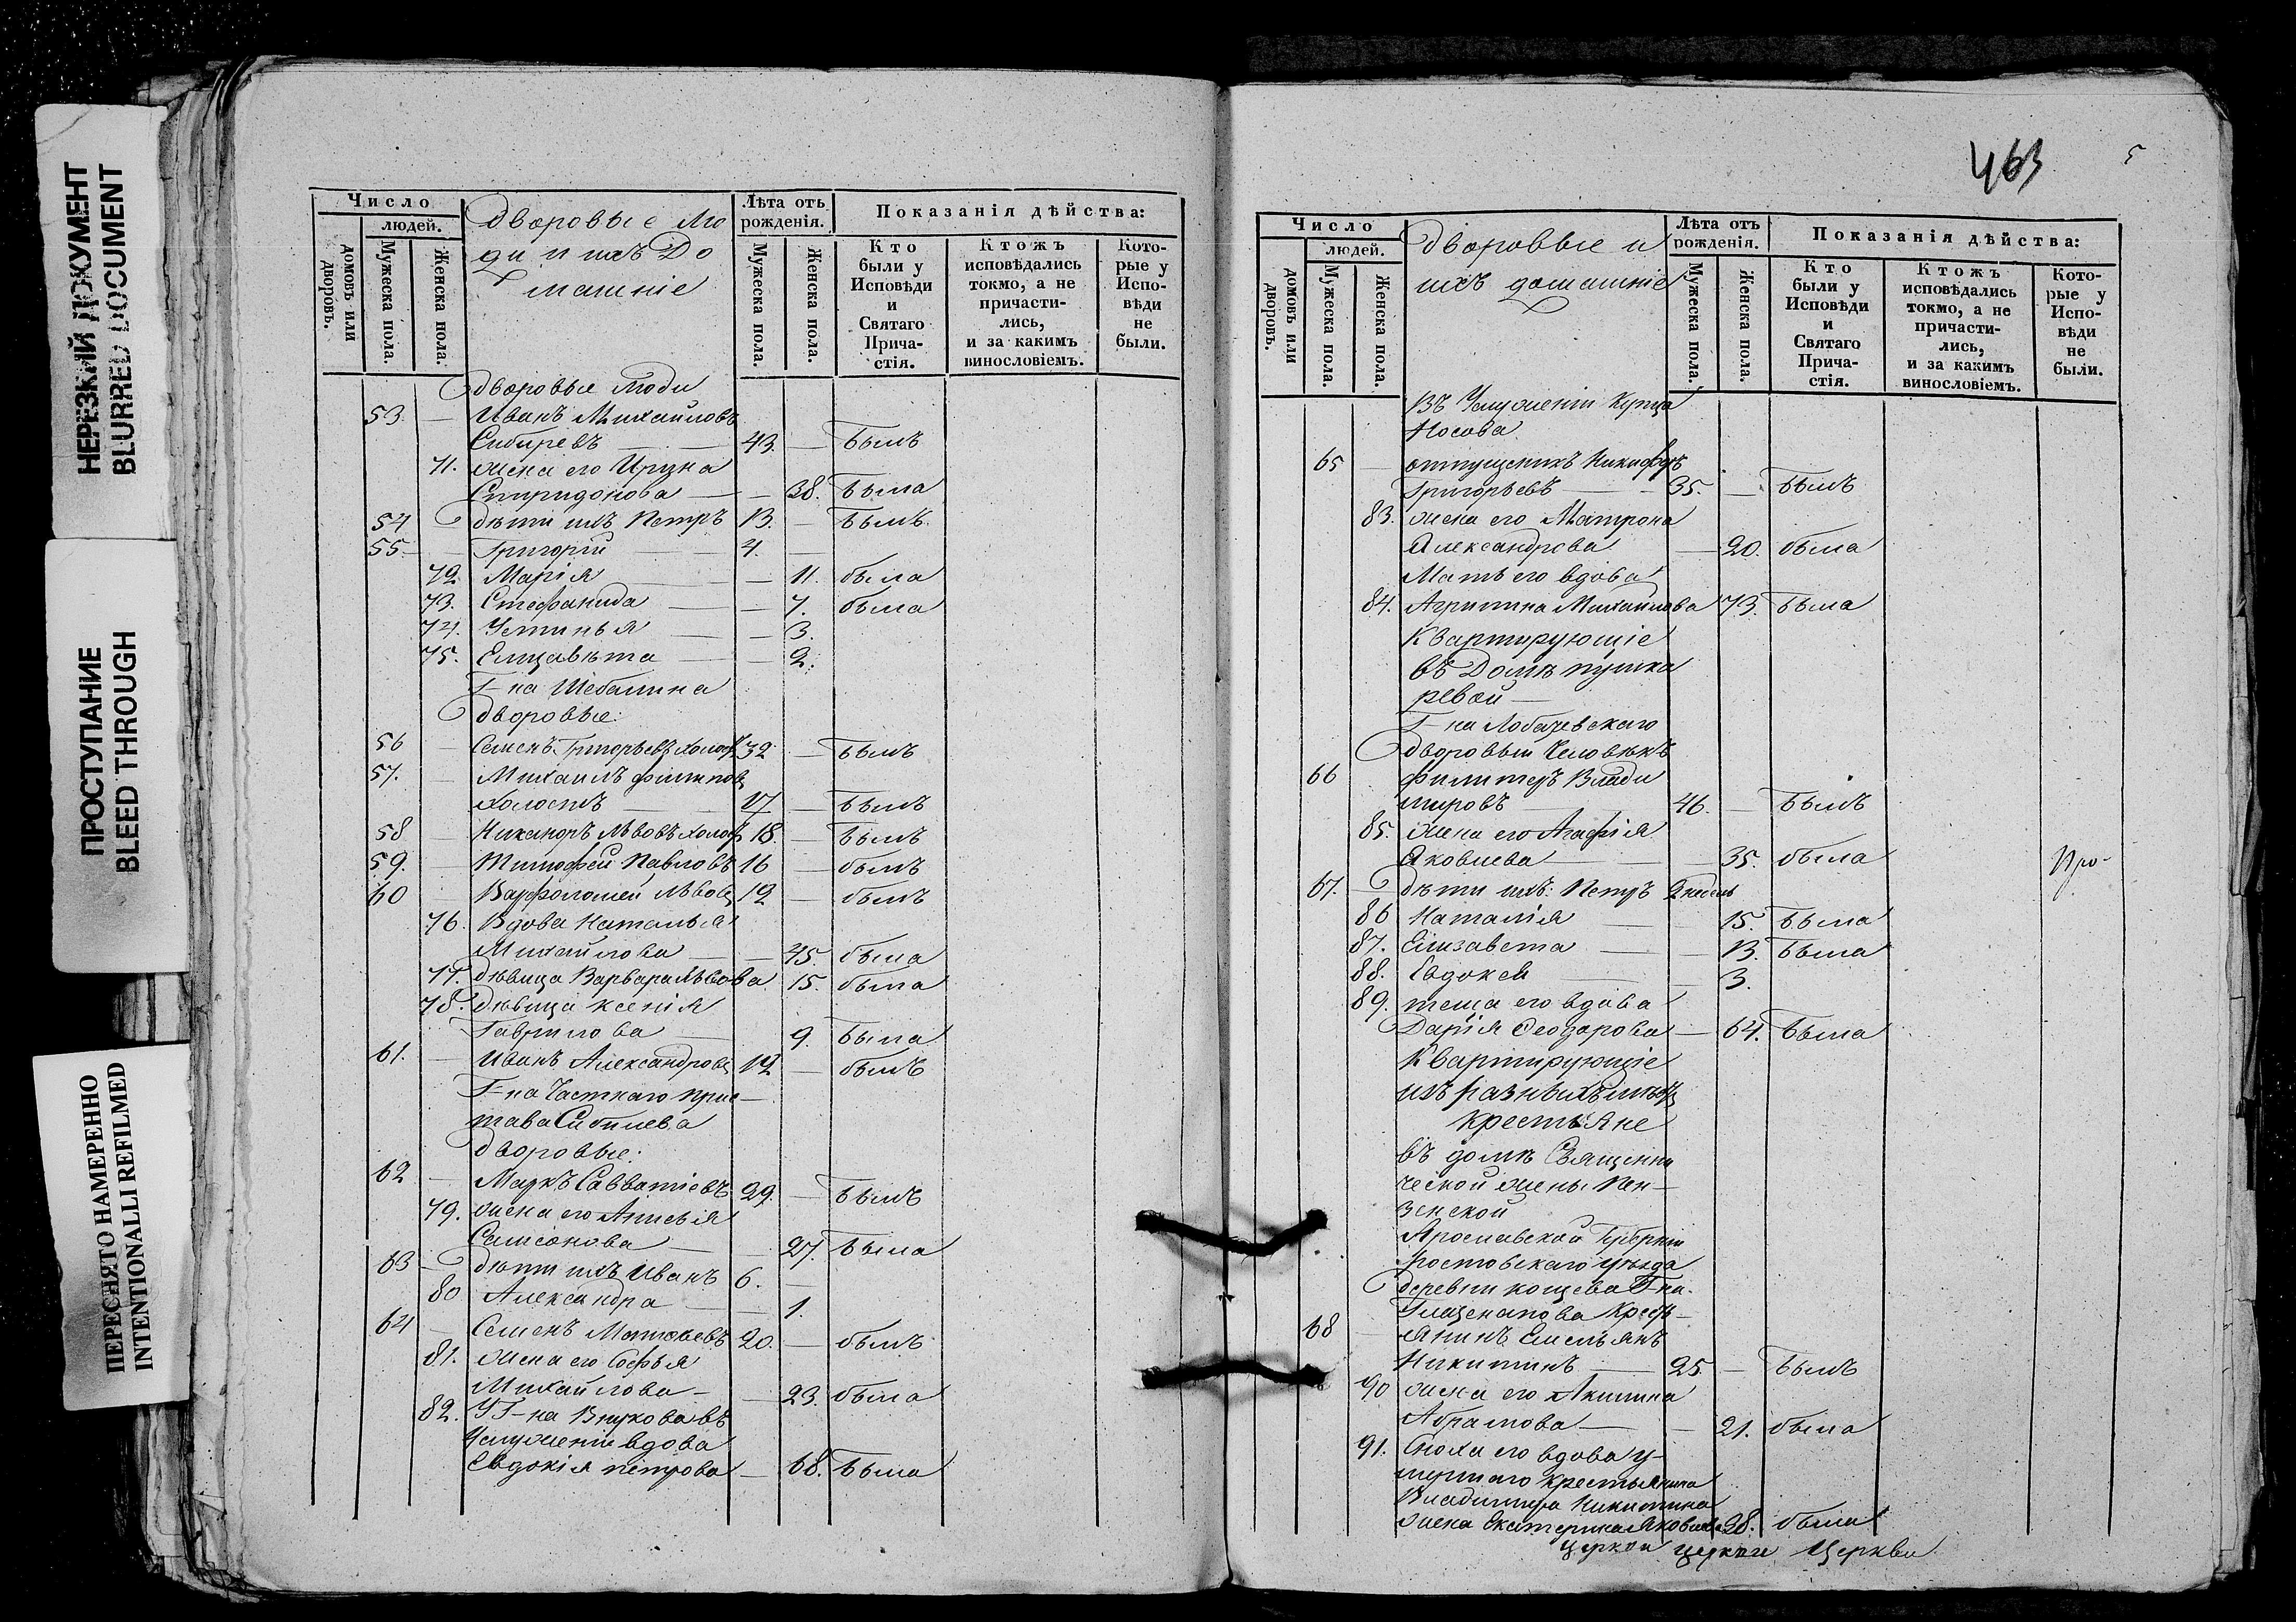 НЕРЕЗКИЙ ДОКУМЕНТ
BLURRED DOCUMENT
ПРОСТУПАНИЕ
BLEED THROUGH
ПЕРЕСНЯТО НАМЕРЕННО
INTENTIONALLI REFILMED
Число
людей.
домовъ или дворовъ.
Мужеска пола.
Женска пола.
Дворовые Лю
ди и ихъ До
машніе
Лѣта отъ рожденія.
Мужеска пола.
Женска пола.
Показанія дѣйства:
Кто были у Исповѣди и Святаго Прича-стія.
Ктожъ исповѣдались токмо, а не причасти-лись, и за какимъ винословіемъ.
Кото-рые у Испо-вѣди не были.
Дворовые люди
53. — Иванъ Михайловъ
Сибиревъ — 43. — былъ
71. жена его Ирина
Спиридонова — — 38. была
54 Дѣти ихъ Петръ 13. — былъ
55. — Григорій — 4. —
72. Марія — — 11. была
73. Стефанида — — 7. была
74. Устинья — — 3.
75. Елизавѣта — — 2.
Г-на Шебалина
Дворовые:
56 — Семенъ Григорьевъ холост 32 — былъ
57. — Михаилъ Филиповъ
холостъ — 17 — былъ
58 — Никаноръ Львовъ холост 18. — былъ
59. — Тимофей Павловъ 16 — былъ
60 — Варфоломей Львовъ 12 — былъ
76. Вдова Наталья
Михайлова — — 45. была
77. Дѣвица Варвара Львова 15. была
78. Дѣвица Ксенія
Гаврилова — 9. была
61. — Иванъ Александровъ 12 — былъ
Г-на Частнаго При-
става Сибилева
Дворовые:
62 — Маркъ Савватіевъ 29. — былъ
79. жена его Анисья
Самсонова — 27. была
63 — Дѣти ихъ Иванъ 6. —
80 Александра — — 1.
64 — Семенъ Матвѣевъ 20. — былъ
81. жена его Софья
Михайлова — — 23. была
82. У Г-на Внукова въ
Услуженіи вдова
Евдокія Петрова — 68. была
463
5
Число
людей.
домовъ или дворовъ.
Мужеска пола.
Женска пола.
Дворовые и
ихъ домашніе
Лѣта отъ рожденія.
Мужеска пола.
Женска пола.
Показанія дѣйства:
Кто были у Исповѣди и Святаго Прича-стія.
Ктожъ исповѣдались токмо, а не причасти-лись, и за какимъ винословіемъ.
Кото-рые у Испо-вѣди не были.
Въ Услуженіи Купца
Носова
65 — отпущеникъ Никифоръ
Григорьевъ — 35. — былъ
83. жена его Матрона
Александрова — 20. была
Мать его вдова
84. Агрипина Михайлова 73. была
Квартирующіе
въ Домѣ Пушка
ревой —
Г-на Лобачевскаго
Дворовый Человѣкъ
66 Филиперъ Влади
мировъ 46. — былъ
85. жена его Агафія
Яковлева — — 35. была
Про-
67. — Дѣти ихъ: Петръ 2 недель
86 Наталія — — 15. была
87. Елизавета — — 13. была
88. Евдокея — — 3.
89. теща его вдова
Дарія Феодорова — 64. была
Квартирующіе
изъ разныхъ
крестьяне
въ домѣ Священни
ческой жены Пен-
зенской
Ярославской Губерніи
Ростовскаго уѣзда
деревни Кощева Г-на
68 — янинъ Емельянъ
Никитинъ — 25. — былъ
90 жена его Акилина
Абрамова — — 21. была
91. Сноха его вдова у-
мершаго крестьянина
Владимира Никитина
жена Екатерина Яковлева 28. была
церкви церкви Церкви